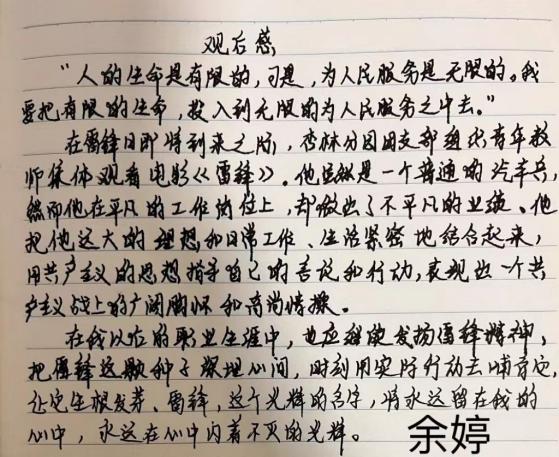 观后感
“人的生命是有限的,可是,为人民服务是无限的。我
要把有限的生命,投入到无限的为人民服务之中去。”
在雷锋日即将到来之际,杏林分园团支部组织青年教
师集体观看电影《雷锋》。他虽然是一个普通的汽车兵,
然而他在平凡的工作岗位上,却做出了不平凡的业绩。他
把他远大的理想和日常工作、生活紧密地结合起来,
用共产主义的思想指导自己的言论和行动,表现出一个共
产主义战士的广阔胸怀和高尚情操。
在我以后的职业生涯中,也应继续发扬雷锋精神,
把雷锋这颗种子深埋心间,时刻用实际行动去哺育它,
让它生根发芽。雷锋,这个光辉的名字,将永远留在我的
心中,永远在心中闪着不灭的光辉。
余婷